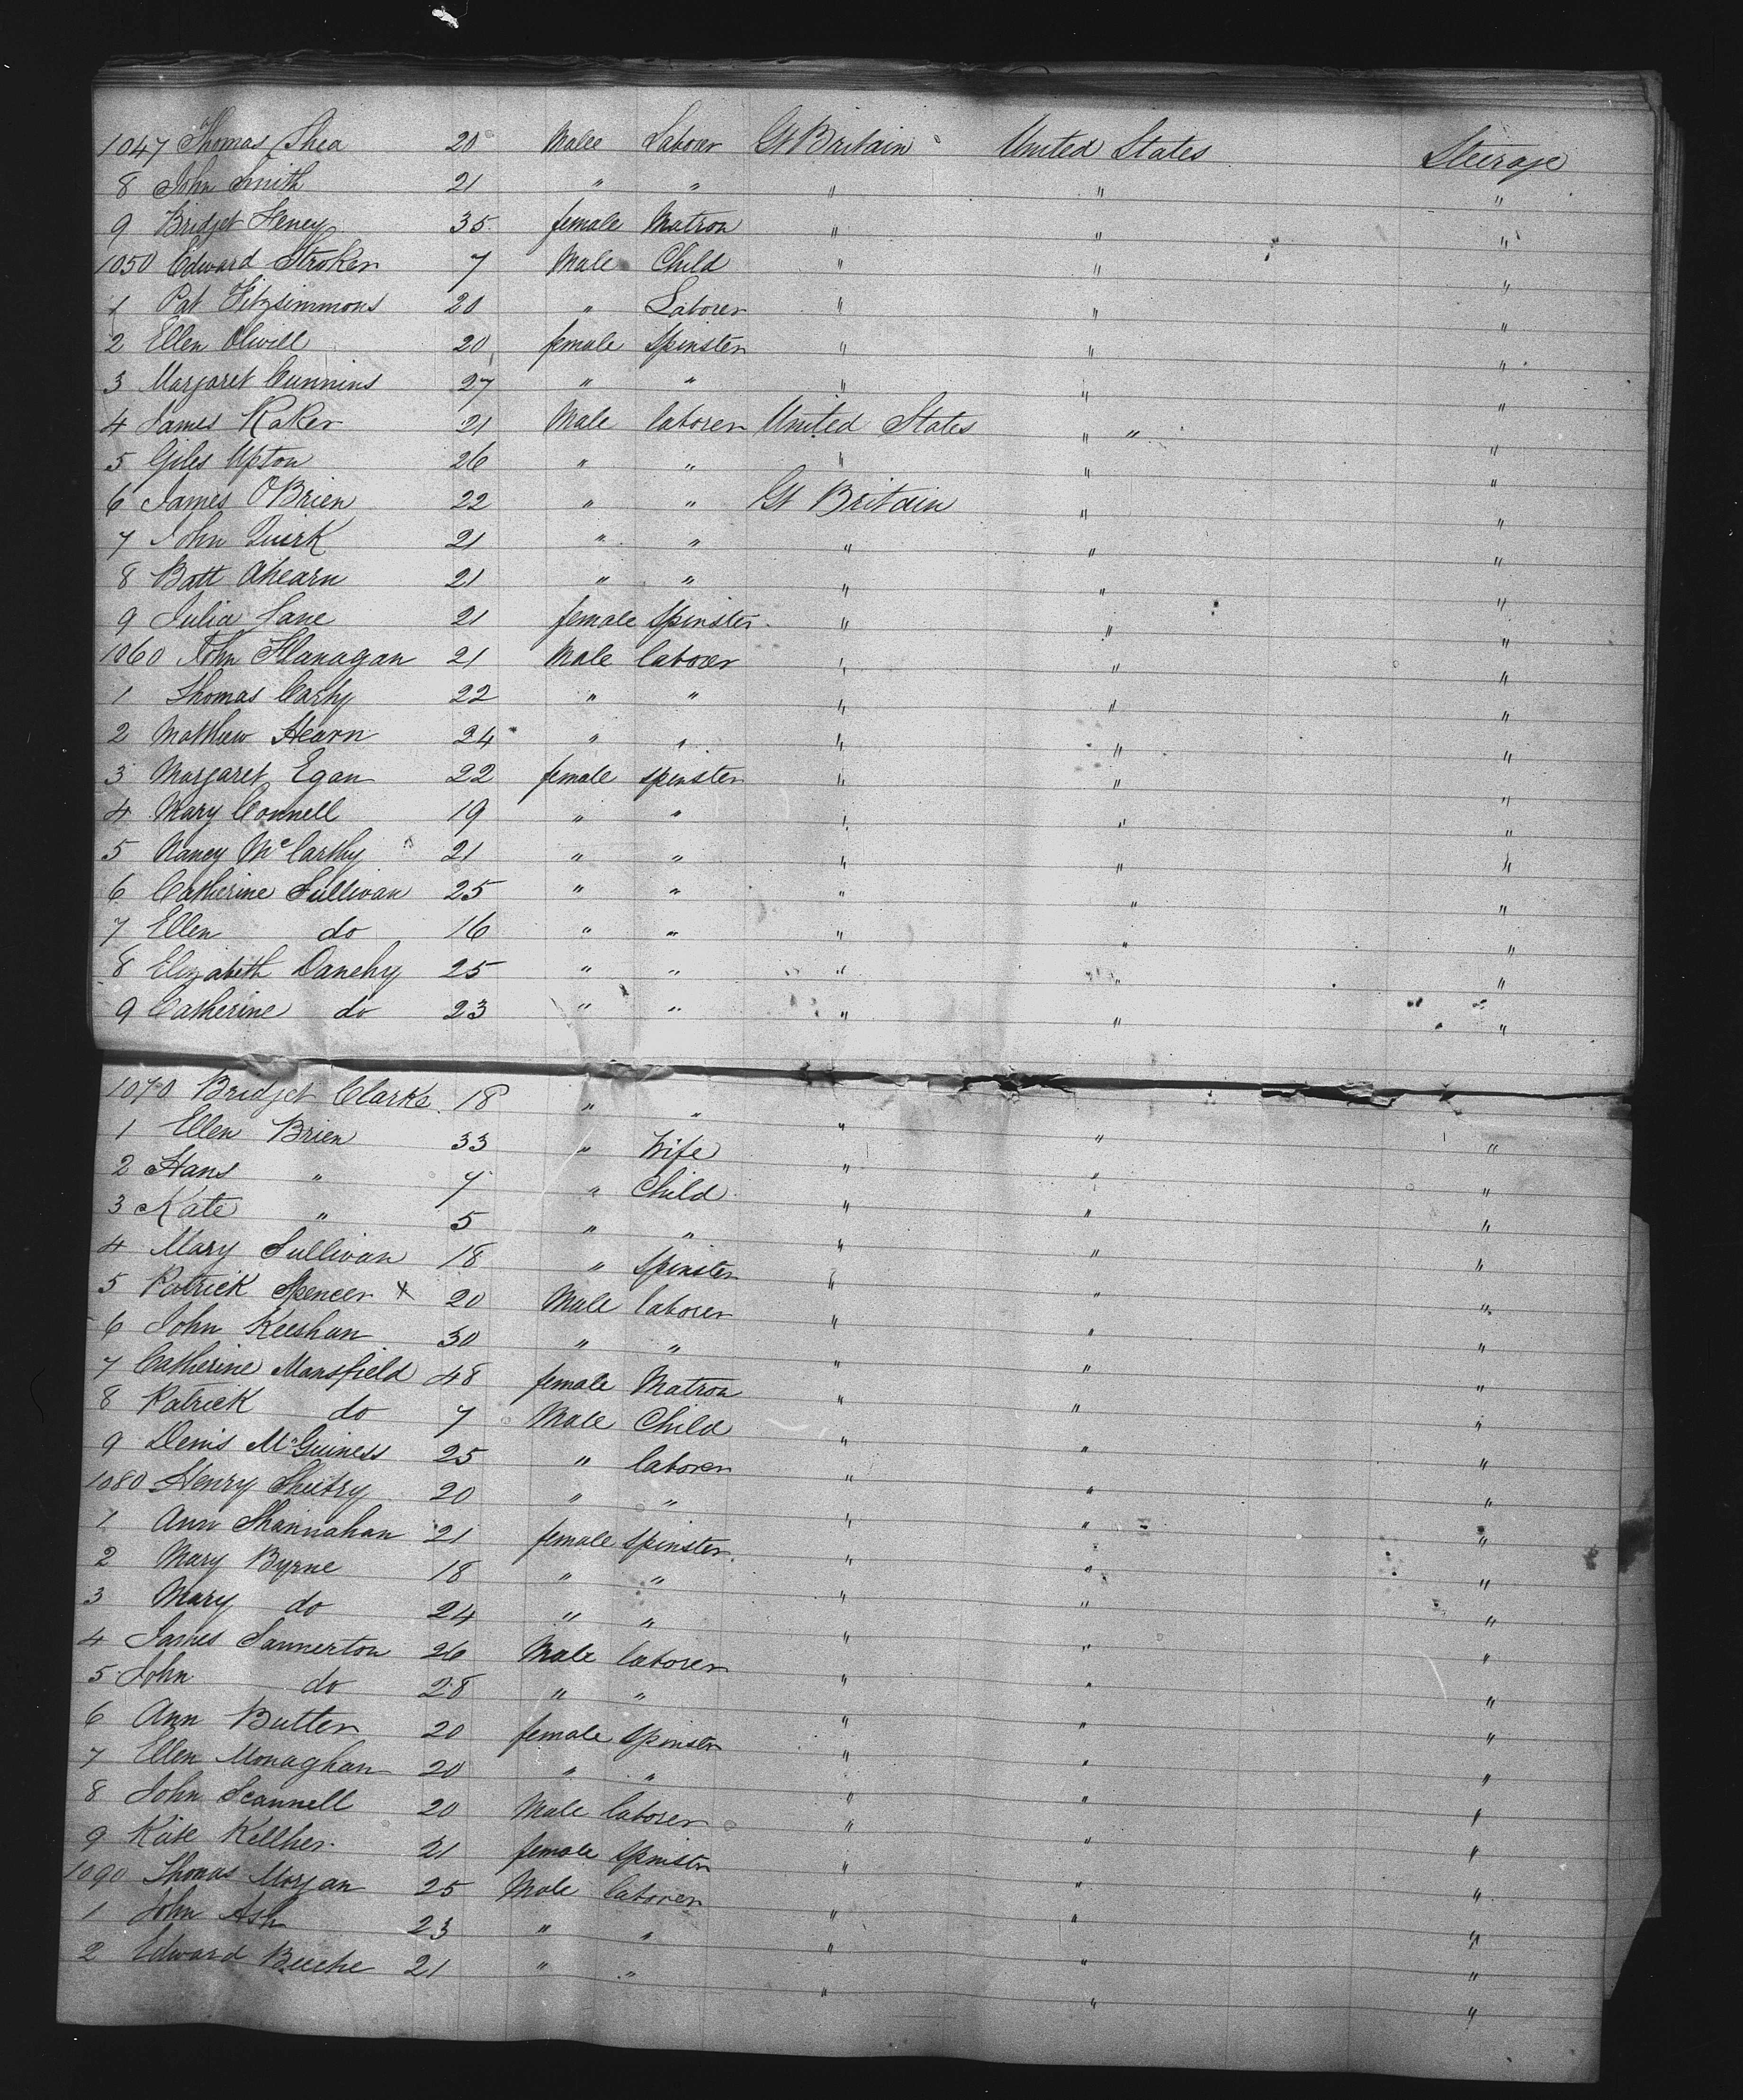 1047 Thomas Shea 20 Male Laborer Gt Britain United States Steerage
8 John Smith 21 " " " " "
9 Bridget Heney 35 female Matron " " "
1050 Edward Stroker 7 Male Child " " "
1 Pat Fitzsimmons 20 " Laborer " " "
2 Ellen Olwill 20 female Spinster " " "
3 Margaret Cummins 27 " " " " "
4 James Raker 21 Male laborer United States " " "
5 Giles Upton 26 " " " " "
6 James OBrien 22 " " Gt Britain " "
7 John Quirk 21 " " " " "
8 Batt Ahearn 21 " " " " "
9 Julia Lane 21 female Spinster " " "
1060 John Flanagan 21 Male laborer " " "
1 Thomas Carty 22 " " " " "
2 Matthew Hearn 24 " " " " "
3 Margaret Egan 22 female spinster " " "
4 Mary Connell 19 " " " " "
5 Nancy McCarthy 21 " " " " "
6 Catherine Sullivan 25 " " " " "
7 Ellen do 16 " " " " "
8 Elizabeth Danehy 25 " " " " "
9 Catherine do 23 " " " " "
1070 Bridget Clarke 18 " " " " "
1 Ellen Brien 33 " Wife " " "
2 Hans " 7 " Child " " "
3 Kate " 5 " " " " "
4 Mary Sullivan 18 " Spinster " " "
5 Patrick Spencer x 20 Male laborer " " "
6 John Keeshan 30 " " " " "
7 Catherine Mansfield 48 female Matron " " "
8 Patrick do 7 Male Child " " "
9 Denis McGuiness 25 " laborer " " "
1080 Henry Sheetry 20 " " " " "
1 Ann Shannahan 21 female spinster " " "
2 Mary Byrne 18 " " " " "
3 Mary do 24 " " " " "
4 James Sannerton 26 Male laborer " " "
5 John do 28 " " " " "
6 Ann Butler 20 female Spinster " " "
7 Ellen Monaghan 20 " " " " "
8 John Scannell 20 Male laborer " " "
9 Kate Kellher 21 female Spinster " " "
1090 Thomas Morgan 25 Male laborer " " "
1 John Ash 23 " " " " "
2 Edward Beeche 21 " " " " "